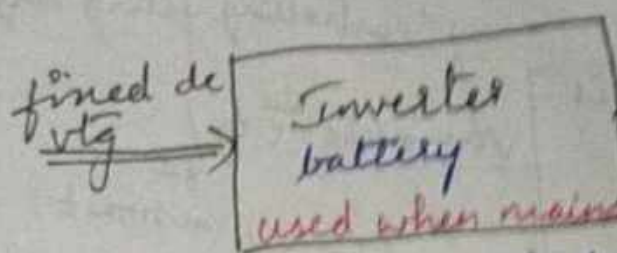 fixed dc
vtg
Inverter
battery
used when mains